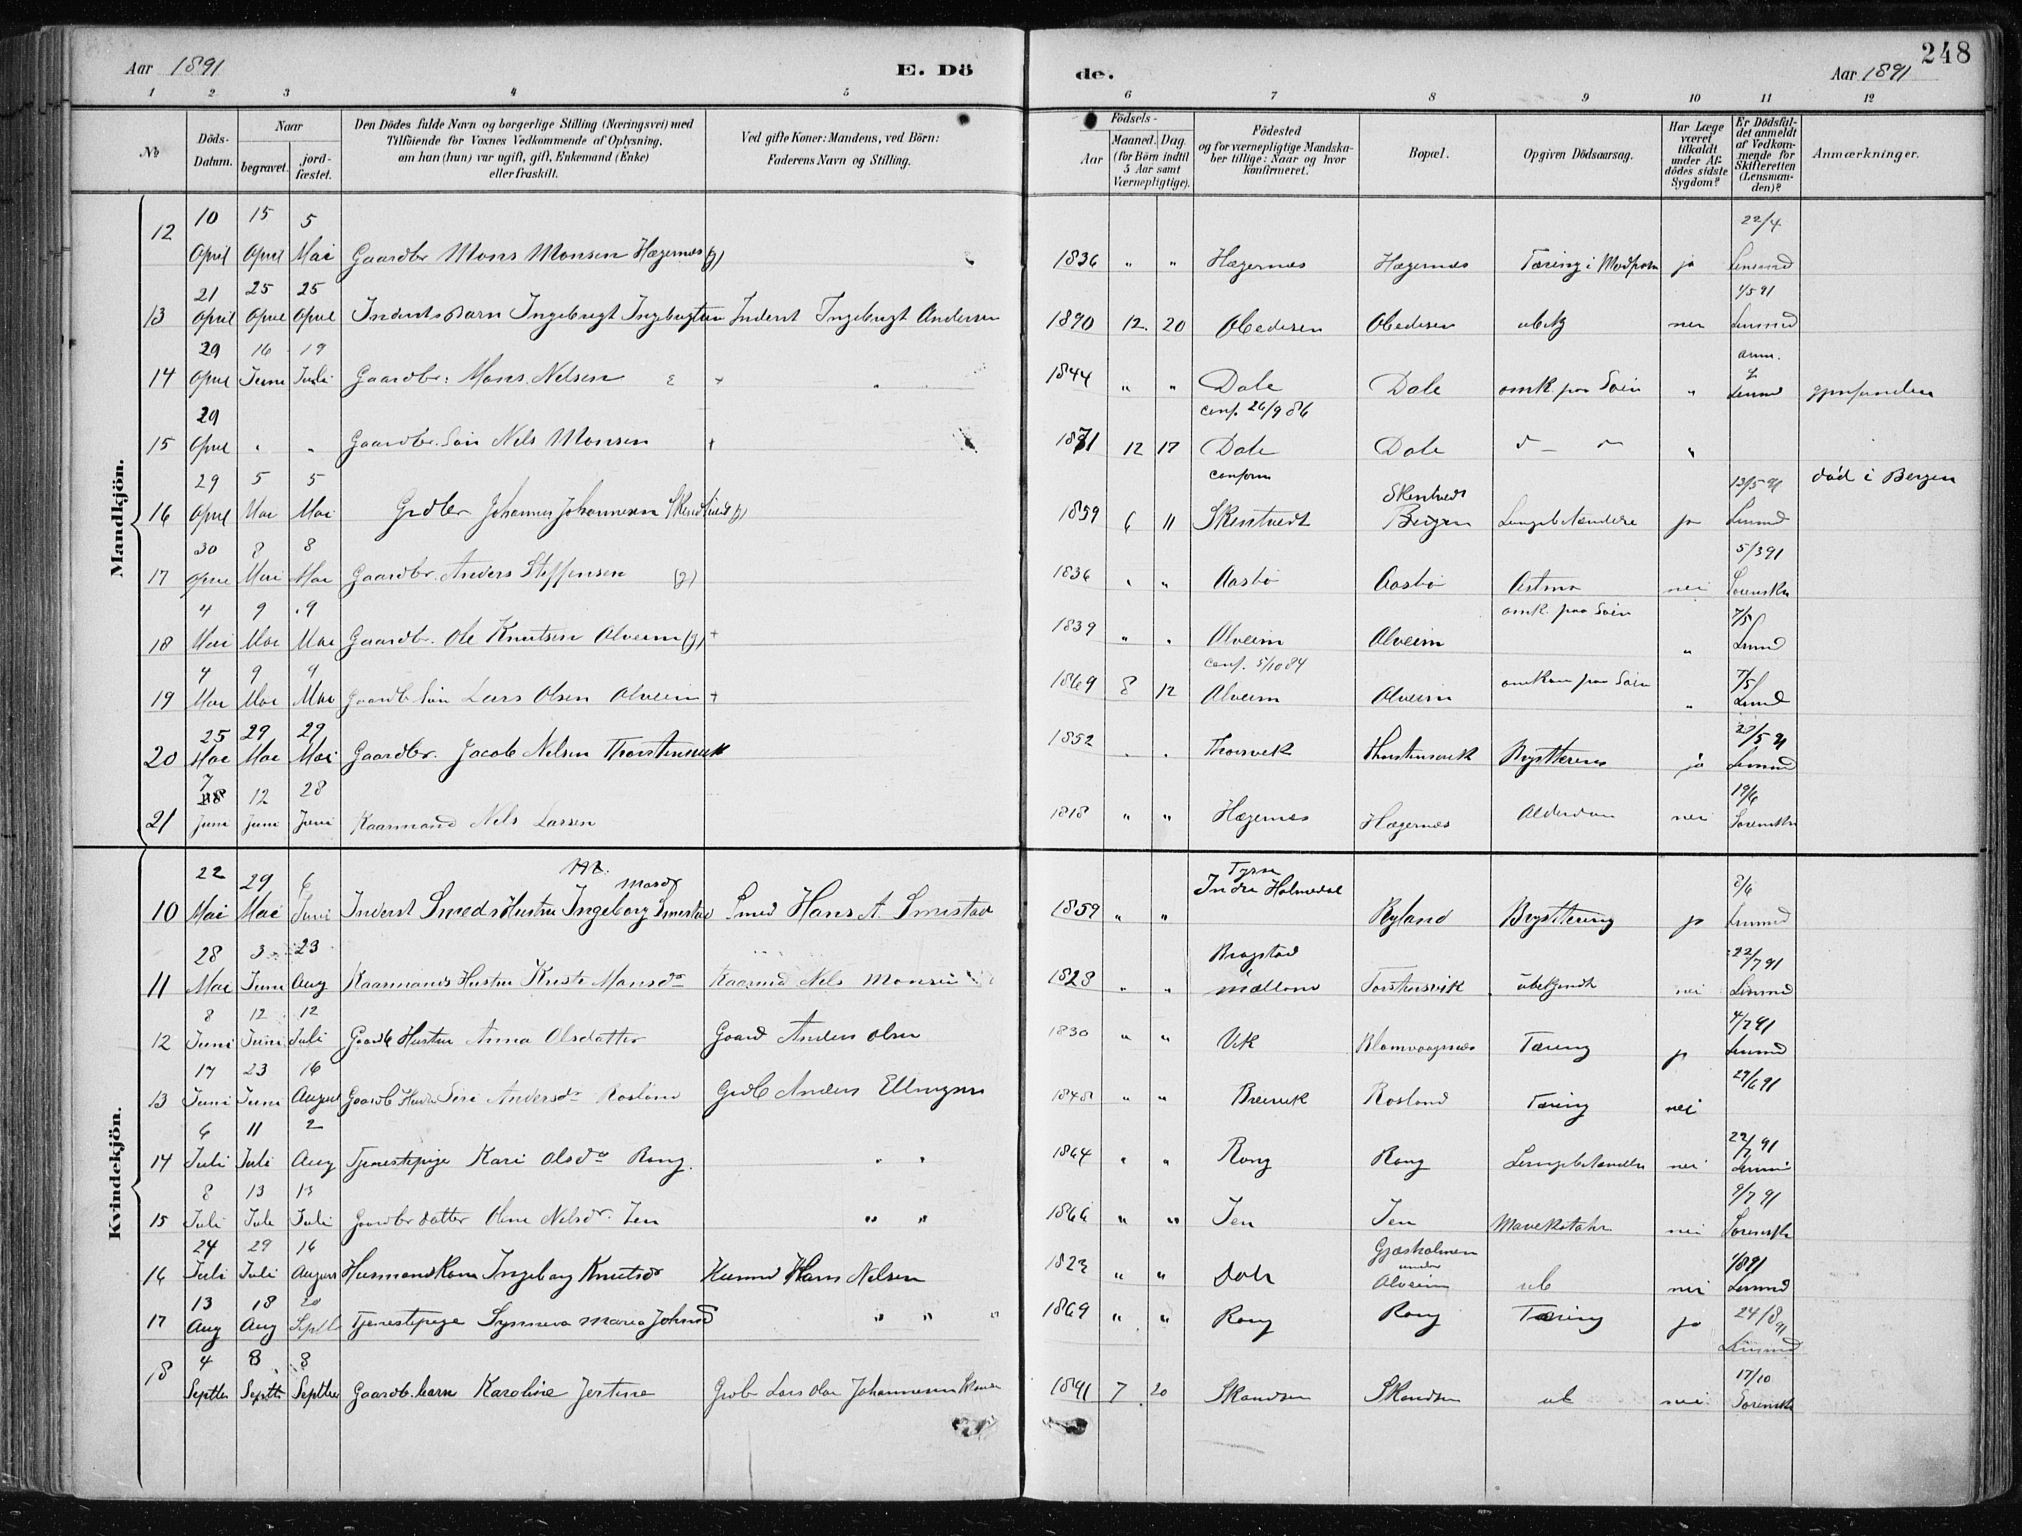 Aar 1891 E. Dö
de. Aar 1891 248
1 2 3 4 5 6 7 8 9 10 11 12
No
Döds-Datum.
Naar
begravet.
jord-fæstet.
Den Dödes fulde Navn og borgerlige Stilling (Næringsvei) med
Tilföiende for Voxnes Vedkommende af Oplysning,
om han (hun) var ugift, gift, Enkemand (Enke)
eller fraskilt.
Ved gifte Koner: Mandens, ved Börn:
Faderens Navn og Stilling.
Födsels-
Aar
Maaned. Dag.
(for Börn indtil
5 Aar samt
Værnepligtige).
Födested
og for værnepligtige Mandska-
ber tillige: Naar og hvor
konfirmeret.
Bopæl.
Opgiven Dödsaarsag.
Har Læge
været
tilkaldt
under Af-
dödes sidste
Sygdom?
Er Dödsfal-
det anmeldt
af Vedkom-
mende for
Skifteretten
(Lensman-
den)?
Anmærkninger.
Mandkjön.
12 10 April 15 April 5 Mai Gaardbr Mons Monsen Hægernes (g) 1836 " " Hægernes Hægernes Tæring i ja 22/4 Lensmd
13 21 April 25 April 25 April Indersts Barn Ingebrigt Ingebrigtsen Inderst Ingebrigt Andersen 1890 12 20 ubekj nei 1/5 91 Lensmd
14 29 April 16 Juni 19 Juli Gaardbr. Mons Nelsen + 1844 " " Dale Dale omk. paa Söen " anm. Lensmd
15 29 April " " Gaardbr. Sön Nels Monsen + 1871 12 17 conf. 26/9 86 Dale Dale d – o "
16 29 April 5 Mai 5 Mai Grdbr Johannes Johannesen (g) 1859 6 11 conform Skentvedt Skentvedt Bergen Lungebetændelse ja 13/5 91 Lensmd död i Bergen
17 30 April 8 Mai 8 Mai Gaardbr. Anders Steffensen (g) 1836 " " Aasbö Aasbö Astma nei 5/3 91 Sorenskr
18 4 Mai 9 Mai 9 Mai Gaardbr. Ole Knutsen Alveim (g) + 1839 " " Alveim Alveim omk. paa Söen " 7/5 Lensmd
19 4 Mai 9 Mai 9 Mai Gaardb Sön Lars Olsen Alveim + 1869 8 12 conf. 5/10 84 Alveim Alveim omkom paa Söen " 7/5 Lensmd
20 25 Mai 29 Mai 29 Mai Gaardbr. Jacob Nelsen Thorstensvik 1852 " " Thorsvik Thorstensvik ja Lensmd
21 7 Juni 12 Juni 28 Juni Kaarmand Nels Larsen 1818 " " Hægernes Hægernes Alderdom nei 19/6 Sorenskr
Kvindekjön.
10 22 Mai 29 Mai 6 Juni Inderst Smeds Hustru Ingeborg Monsdr Smestad Smed Hans A. Smestad 1859 " " Indre Holmedal Ryland Brysttæring ja 8/6 Lensmd
11 28 Mai 3 Juni 23 Aug Kaarmands Hustru Kristi Monsdr Kaarmd Nels Monsen 1828 " " Bragstad Mælland Torstensvik ubekjendt nei 22/7 91 Lensmd
12 8 Juni 12 Juni 12 Juli Gaardb Hustru Anna Olsdatter Gaard Anders Olsen 1830 " " Vik Blomvaagnæs Tæring ja 4/7 91 Lensmd
13 17 Juni 23 Juni 16 August Gaardb Hustr Siri Andersdr Rosland Grdb Anders Ellingsen 1848 " " Breivik Rosland Tæring nei 29/6 91
14 6 Juli 11 Juli 2 Aug Tjenestepige Kari Olsdr Rong. " " 1864 " " Rong Rong Lungebetændelse nei 22/7 91 Lensmd
15 8 Juli 13 Juli 13 Juli Gaardbr datter Oline Nelsdr. Jen " " 1866 " " Jen Jen Mavekatahr nei 9/7 91 Sorenskr
16 24 Juli 29 Juli 16 August Husmandskone Ingeborg Knutsdr Husmd Hans Nelsen 1823 " " Dale Gjæsholmen under Alveim ub nei 1/8 91 Lensmd
17 13 Aug 18 Aug 20 Septb Tjenestepige Synneva Maria Johnsd " " " 1869 " " Rong Rong Tæring ja 24/8 91 Lensmd
18 4 Septbr 8 Septbr 8 Septber Gaardb. barn Karoline Jertine Grdb Lars Olai Johannesen 1891 7 20 Skandsen Skandsen ub nei 17/10 Sorenskr